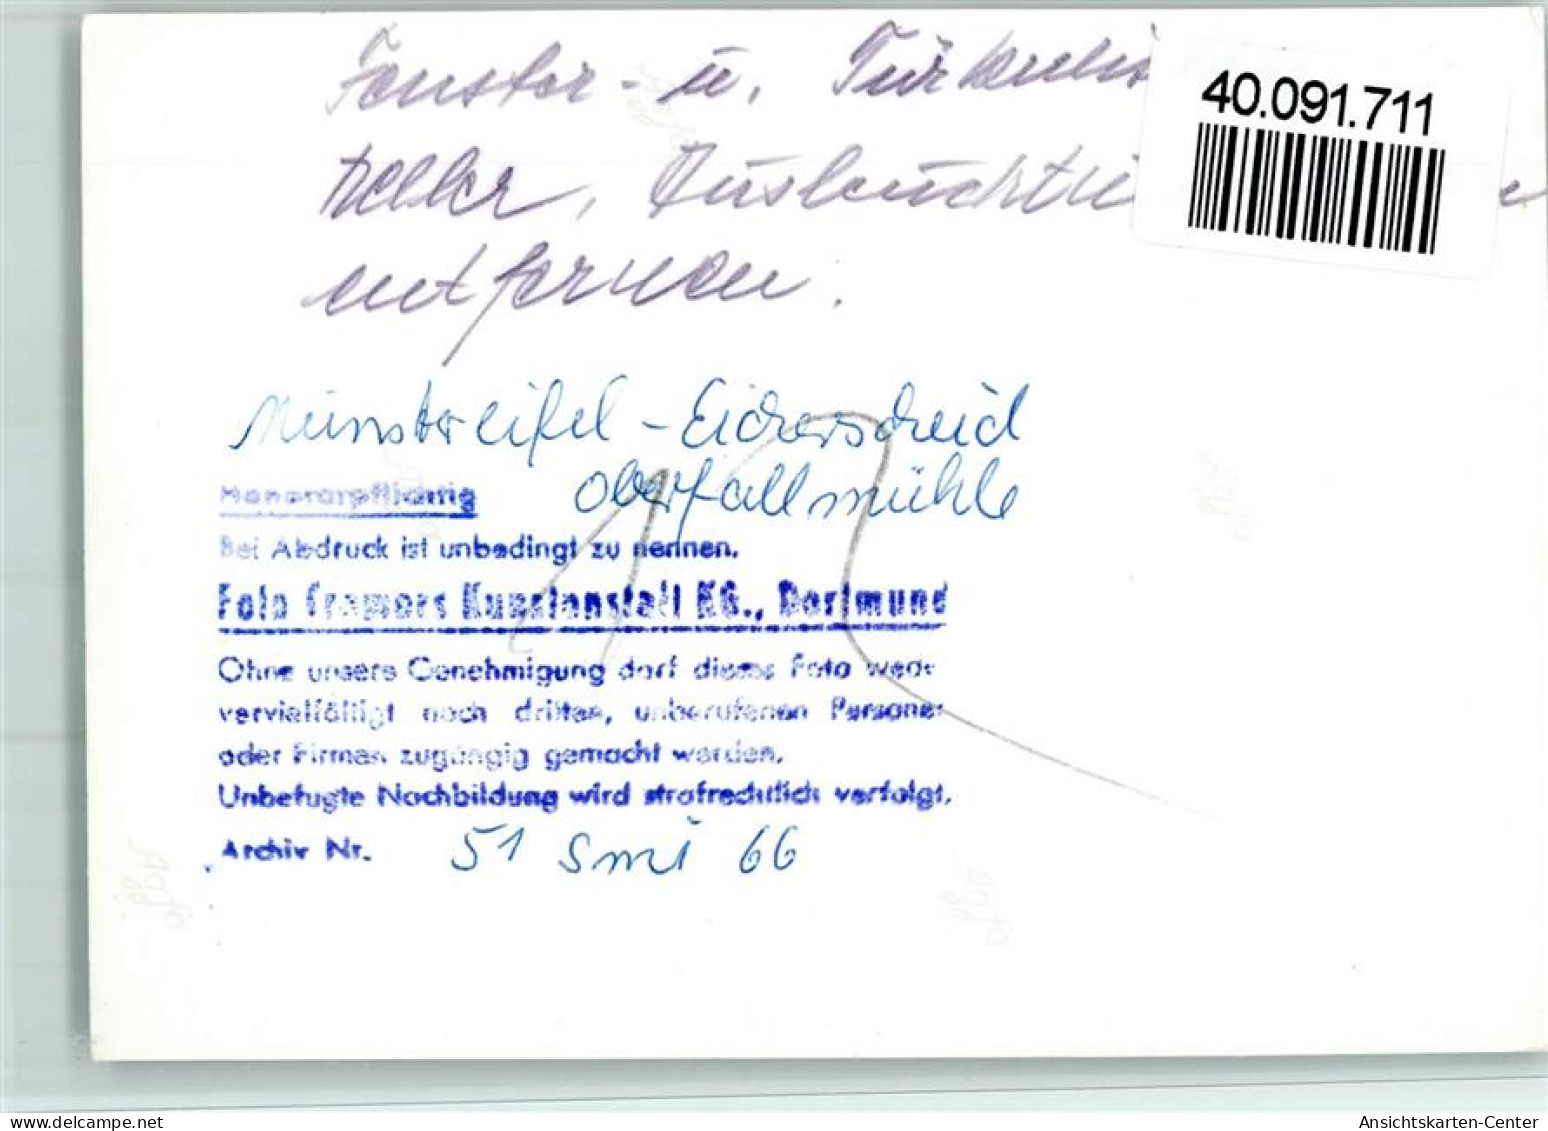 Fenster- u. Türkulis
heller, Ausleuchtu
entfernen.
40.091.711
Münstereifel - Eicherscheid
Oberfallmühle
Honorarpflichtig
Bei Abdruck ist unbedingt zu nennen.
Foto Cramers Kunstanstalt KG., Dortmund
Ohne unsere Genehmigung darf dieses Foto wede
vervielfältigt noch dritten, unberufenen Persone
oder Firmen zugängig gemacht werden.
Unbefugte Nachbildung wird strafrechtlich verfolgt.
Archiv Nr. 51 Smi 66
www.delcampe.net
Ansichtskarten-Center